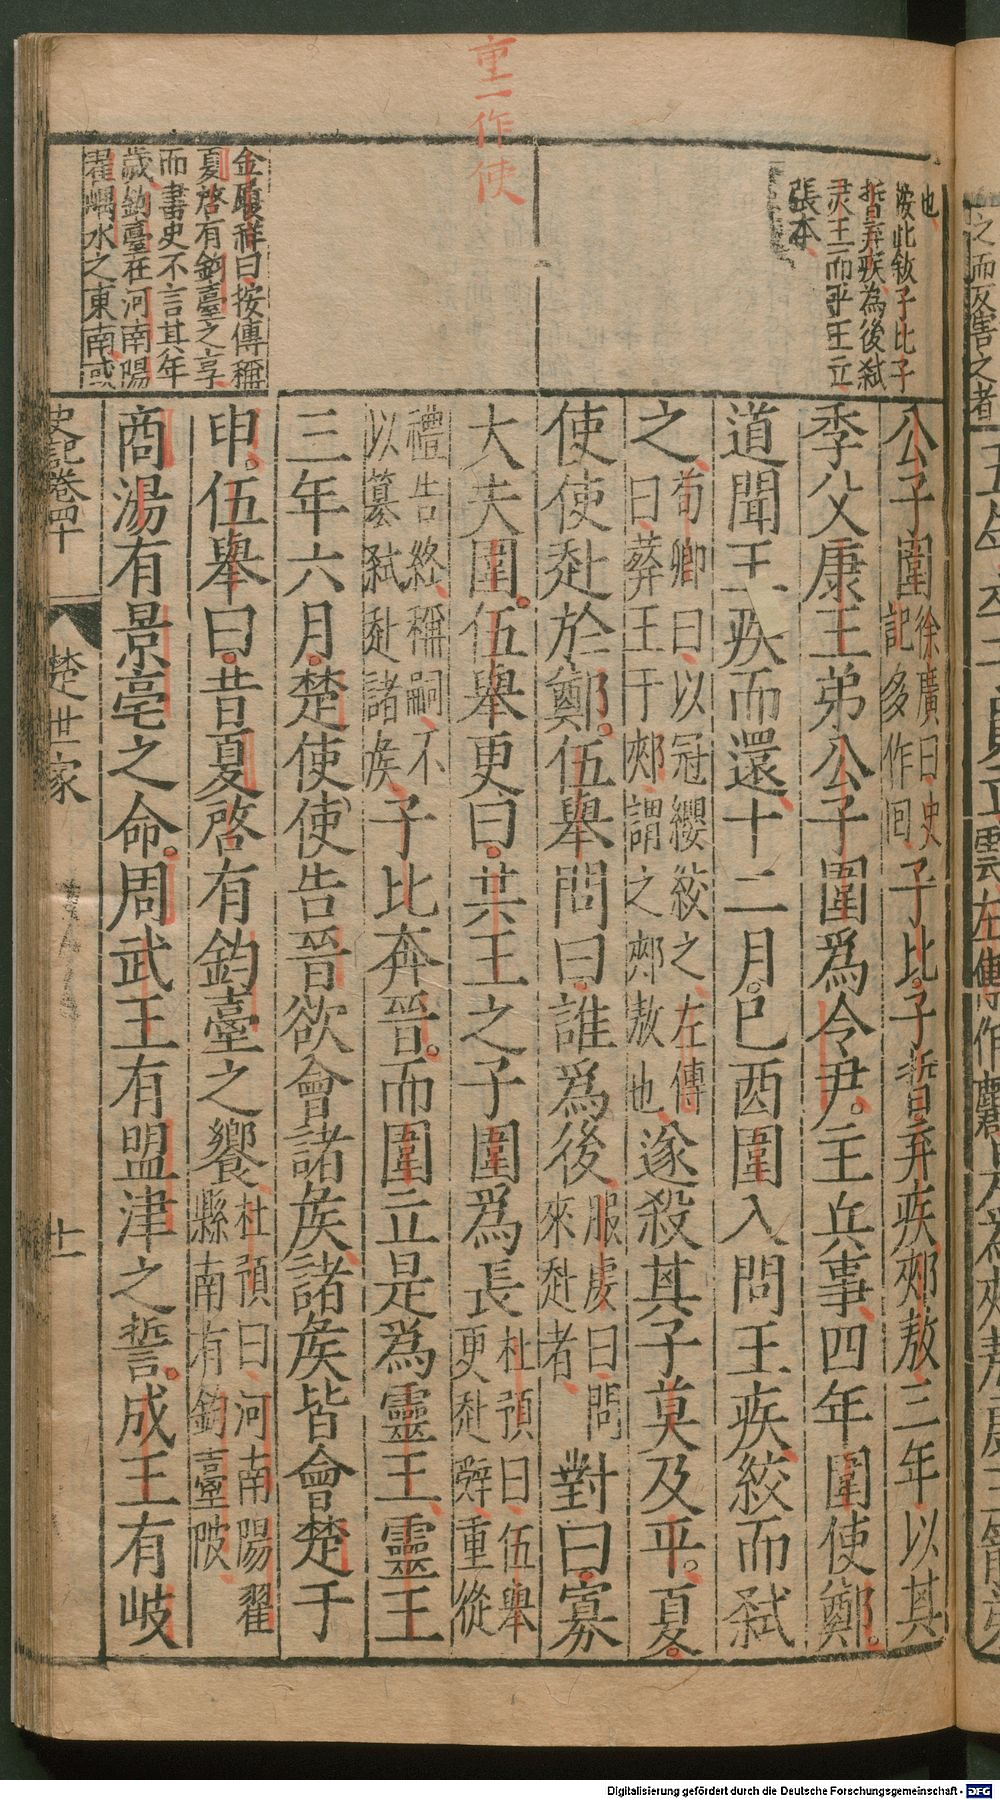 重一作使
也、
按此敘子比子
晳弃疾為後弑
灵王而平王立
張本、
金履祥曰按傳稱
夏啓有鈞臺之享
而書史不言其年
歲鈞臺在河南陽
翟嵎水之東南或
公子圍徐廣曰史記多作回、子比子晳弃疾郟敖三年以其
季父康王弟公子圍爲令尹主兵事四年圍使鄭
道聞王疾而還十二月己酉圍入問王疾絞而弑
之荀卿曰以冠纓絞之左傳曰葬王于郟謂之郟敖也、遂殺其子莫及平夏
使使赴於鄭伍舉問曰誰爲後服虔曰問來赴者、對曰寡
大夫圍伍舉更曰共王之子圍爲長杜預曰伍舉更赴辭重從
禮告終稱嗣不以篡弑赴諸矦、子比奔晉而圍立是爲靈王靈王
三年六月楚使使告晉欲會諸矦諸矦皆會楚于
申伍舉曰昔夏啓有鈞臺之饗杜預曰河南陽翟縣南有鈞臺陂、
商湯有景亳之命周武王有盟津之誓成王有岐
史記卷四十
楚世家
十一
Digitalisierung gefördert durch die Deutsche Forschungsgemeinschaft - DFG